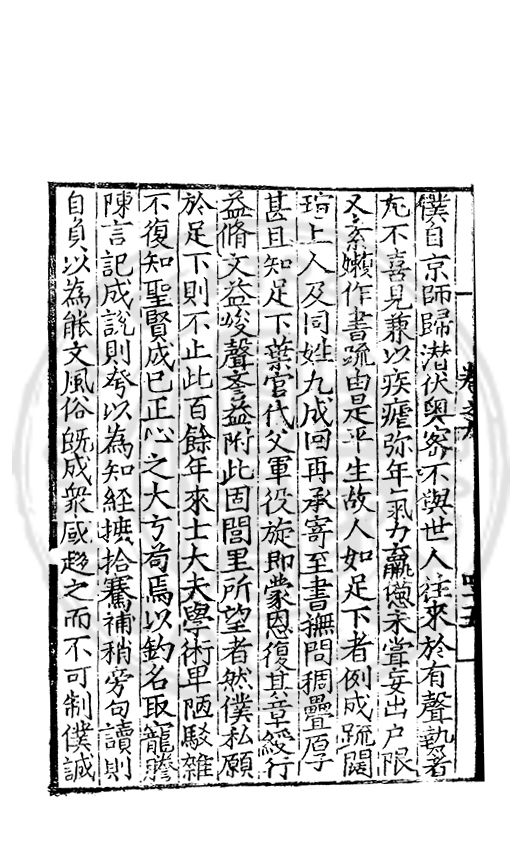 僕自京師歸潜伏奥密不與世人往來於有聲勢者
尤不喜見兼以疾瘧弥年氣力羸憊未嘗妄出户限
又玄嬾作書疏由是平生故人如足下者例成疏闊
上人及同姓九成回再承寄至書撫問稠疊厚
甚且知足下葉官代父軍役旋即蒙恩復其章綬行
益脩文益峻聲益附此固閭里所望者然僕私願
於足下則不止此百餘年來士大夫學術卑陋駁雜
不復知聖賢成已正心之大方苟焉以釣名取寵謄
陳言記成說則夸以為知經摭拾騫補稍旁句讀則
自負以為能文風俗既成衆咸趍之而不可制僕誠
卷之九
四五